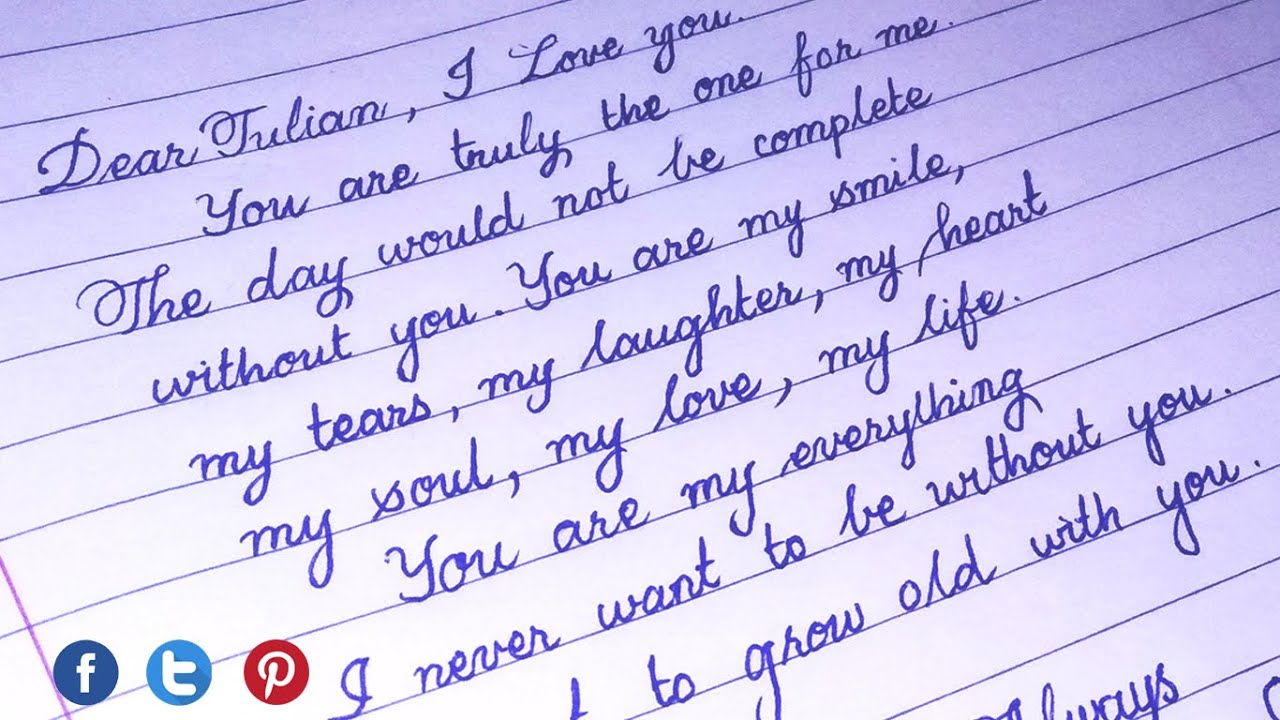 Dear Julian, I Love you.
You are truly the one for me.
The day would not be complete
without you. You are my smile,
my tears, my laughter, my heart
my soul, my love, my life.
You are my everything
I never want to be without you.
to grow old with you.
Always